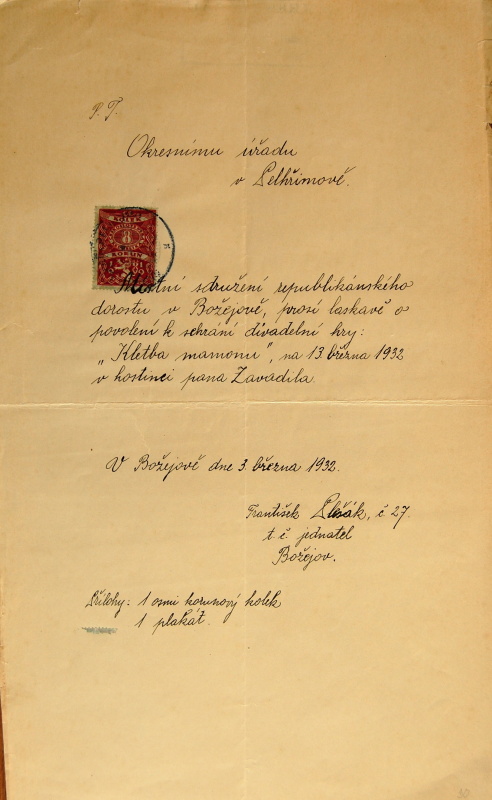 P. T.
Okresnímu úřadu
v Pelhřimově.
KOLEK
8
KORUN
Místní sdružení republikánského
dorostu v Božejově, prosí laskavě o
povolení k sehrání divadelní hry:
„Kletba mamonu", na 13. března 1932
v hostinci pana Zavadila.
V Božejově dne 3. března 1932.
František , č 27.
t č jednatel
Božejov.
Přílohy: 1 osmi korunový kolek
1 plakát.